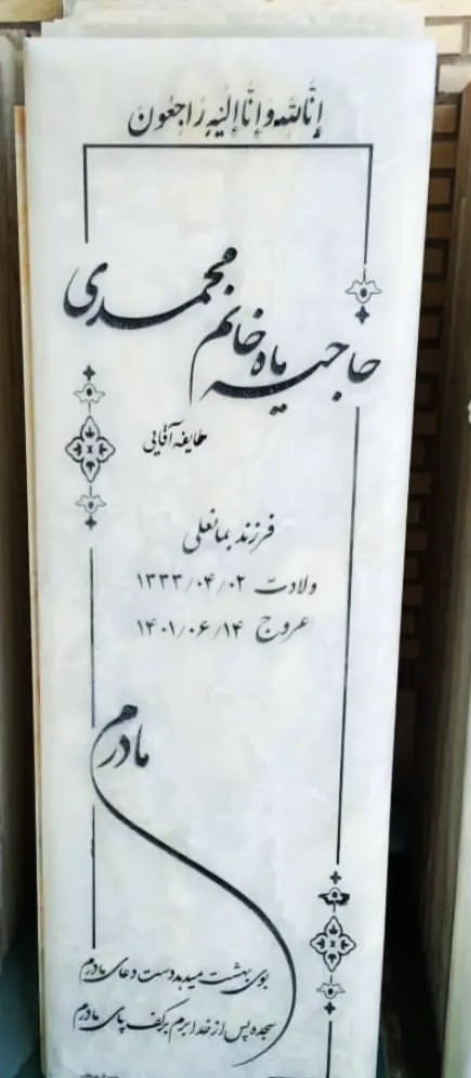 إِنَّا لِلَّهِ وَإِنَّا إِلَيْهِ رَاجِعُونَ
حاجیه ماه خانم محمدی
طایفه آقایی
فرزند بمانعلی
ولادت ۱۳۳۳/۰۴/۰۲
عروج ۱۴۰۱/۰۶/۱۴
مادرم
بوی بهشت میدهد دست دعای مادرم
سجده پس از خدا برم بر کف پای مادرم